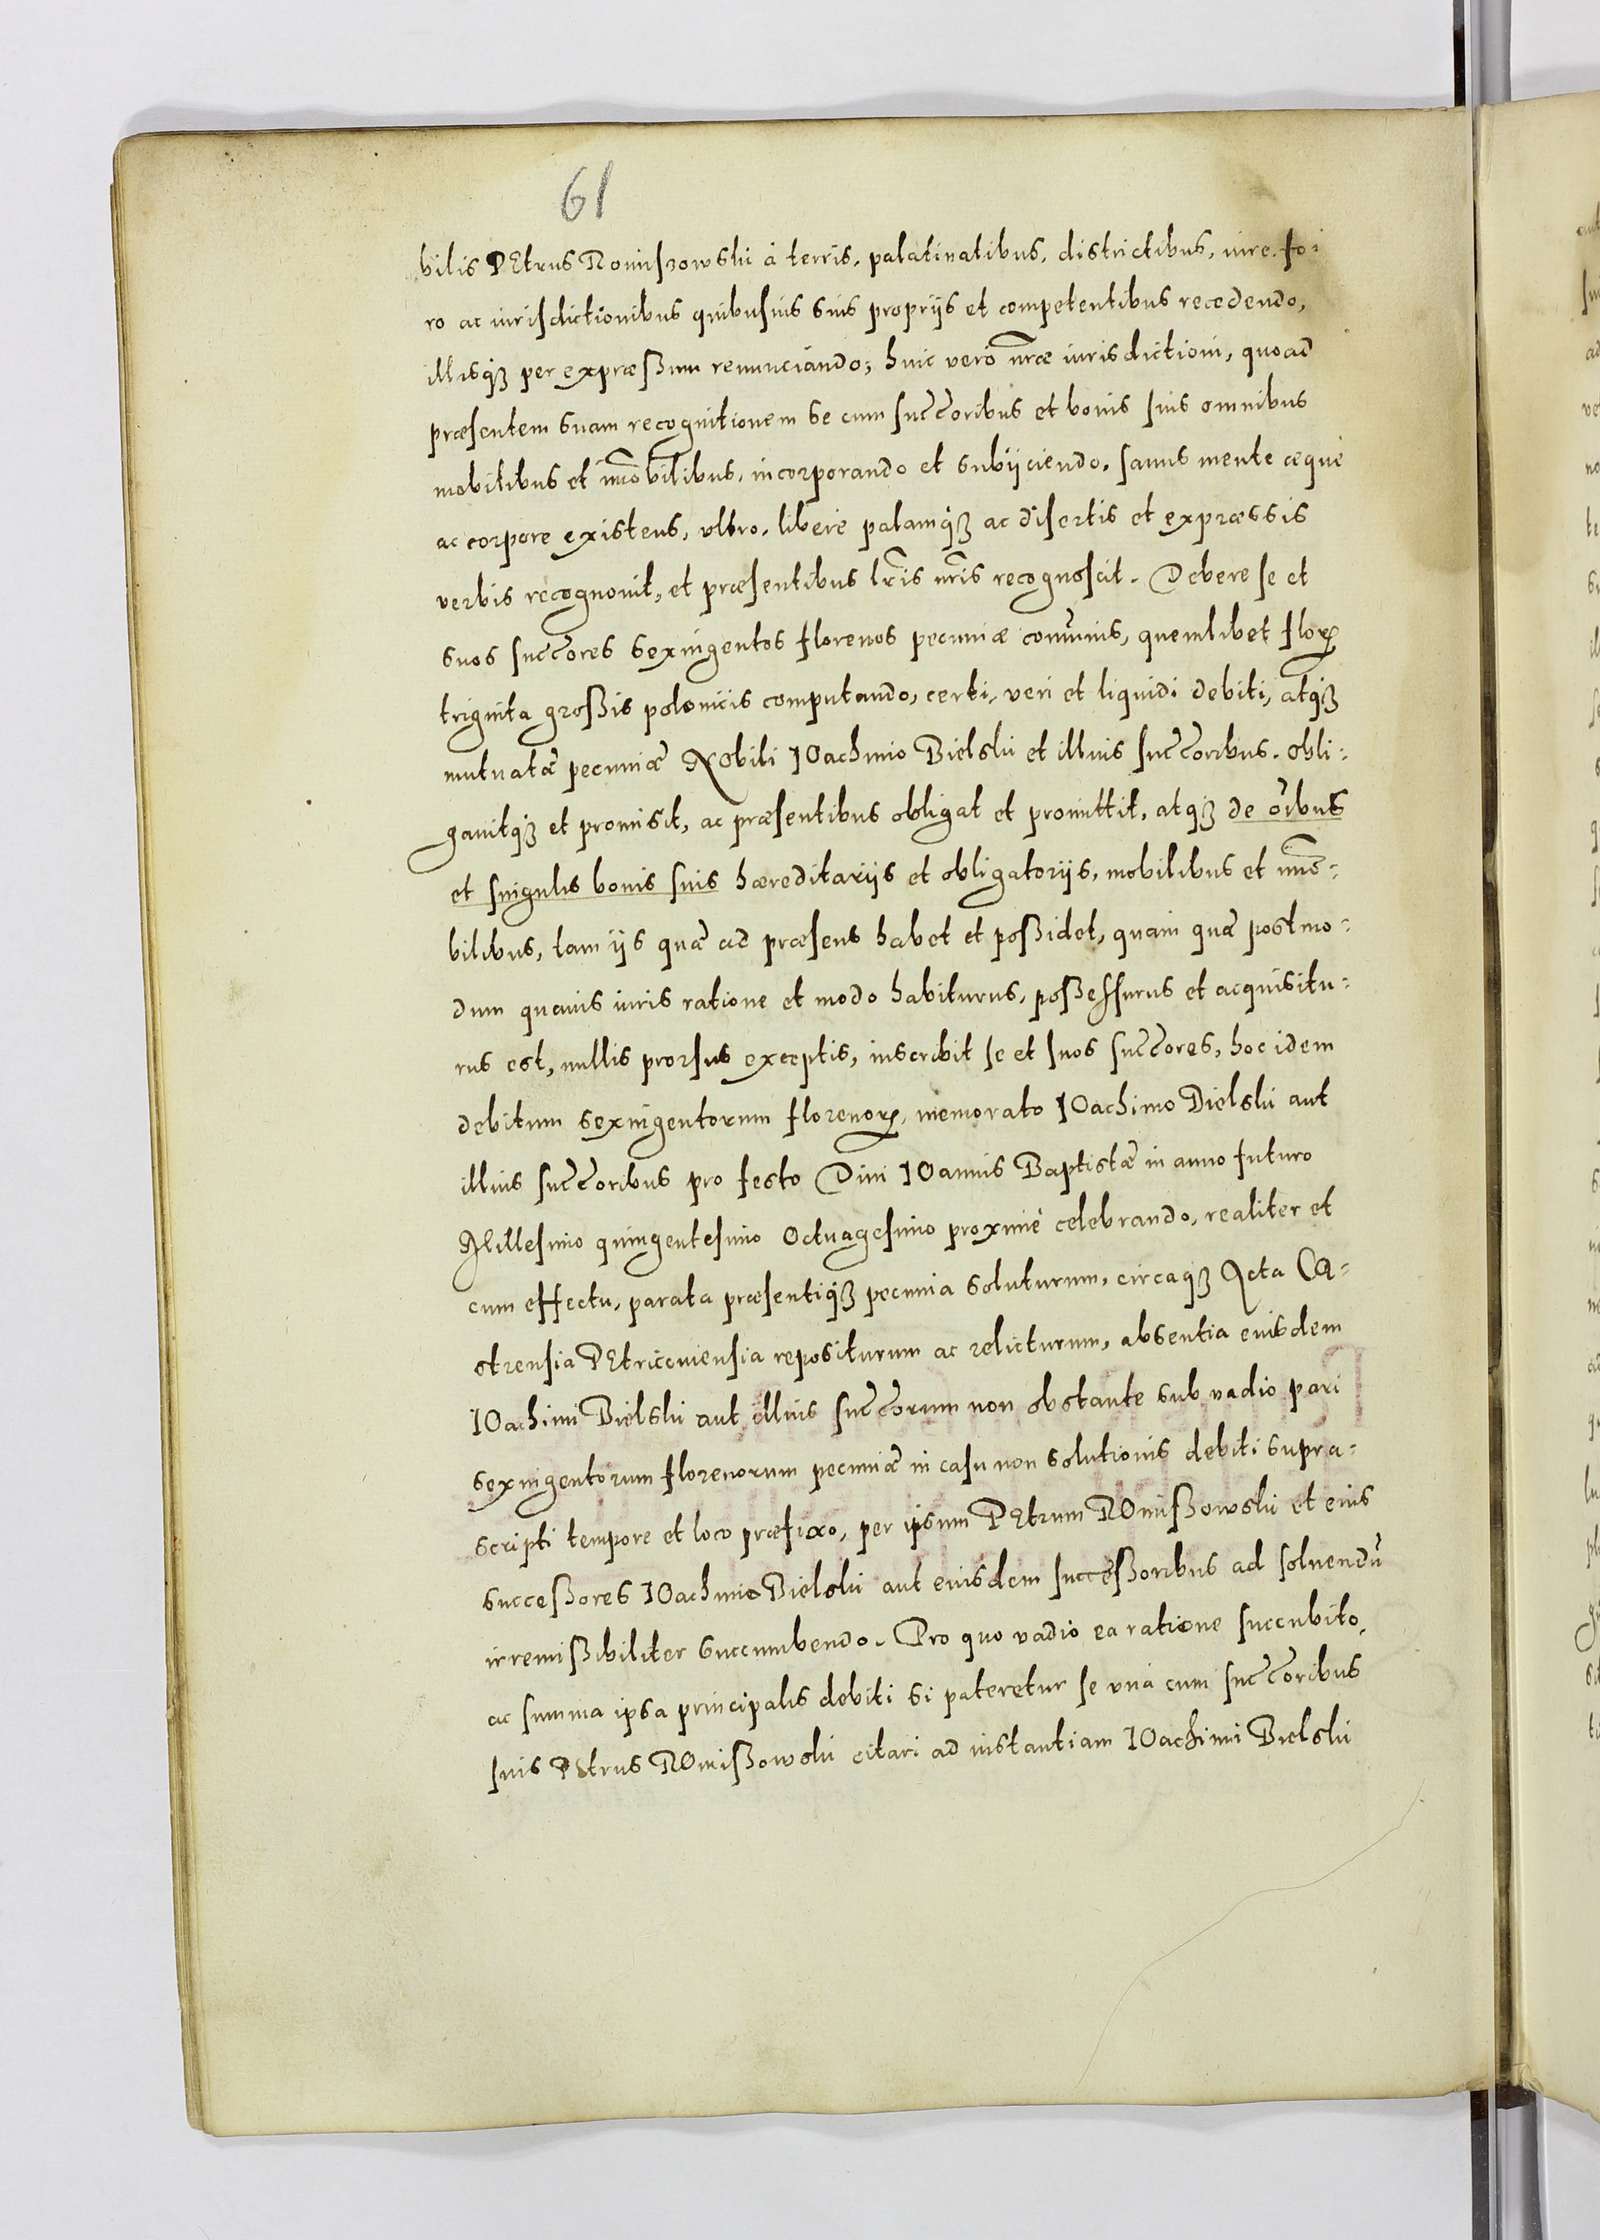 61
bilis PEtrus Romiszowski à terris, palatinatibus, districtibus, iure, fo:
ro ac iurisdictionibus quibusuis suis proprijs et competentibus recedendo,
illisq3 per expræßum renunciando; huic verò nr̃æ iurisdictioni, quoad
præsentem suam recognitionem se cum succ̃oribus et bonis suis omnibus
mobilibus et im̃obilibus, incorporando et subijciendo, sanus mente æque
ac corpore existens, vltro, libere palamq3 ac disertis et expræssis
verbis recognouit, et præsentibus lr̃is nr̃is recognoscit. Debere se et
suos succ̃ores sexingentos florenos pecuniæ com̃unis, quemlibet floꝝ
triginta großis polonicis computando, certi, veri et liquidi debiti, atq3
mutuatæ pecuniæ NObili IOachimo Bielski et illius succ̃oribus. Obli:
gauitq3 et promisit, ac præsentibus obligat et promittit, atq3 de oĩbus
et singulis bonis suis hæreditarijs et obligatorijs, mobilibus et im̃o:
bilibus, tam ijs quæ ad præsens habet et poßidet, quam quæ postmo:
dum quauis iuris ratione et modo habiturus, poßeßurus et acquisitu:
rus est, nullis prorsus exceptis, inscribit se et suos succ̃ores, hoc idem
debitum sexingentorum florenoꝝ, memorato IOachimo Bielski aut
illius succ̃oribus pro festo Diui IOannis Baptistæ in anno futuro
Millesimo quingentesimo Octuagesimo proximè celebrando, realiter et
cum effectu, parata præsentiq3 pecunia soluturum, circaq3 Acta CA:
strensia PEtricouiensia repositurum ac relicturum, absentia eiusdem
IOachimi Bielski aut illius succ̃orum non obstante sub vadio pari
sexingentorum florenorum pecuniæ in casu non solutionis debiti supra:
scripti tempore et loco præfixo, per ipsum PEtrum ROmißowski et eius
succeßores IOachimo Bielski aut eiusdem succeßoribus ad soluendũ
irremißibiliter succumbendo. Pro quo vadio ea ratione succubito,
ac summa ipsa principalis debiti si pateretur se vnà cum succ̃oribus
suis PEtrus ROmißowski citari ad instantiam IOachimi Bielski